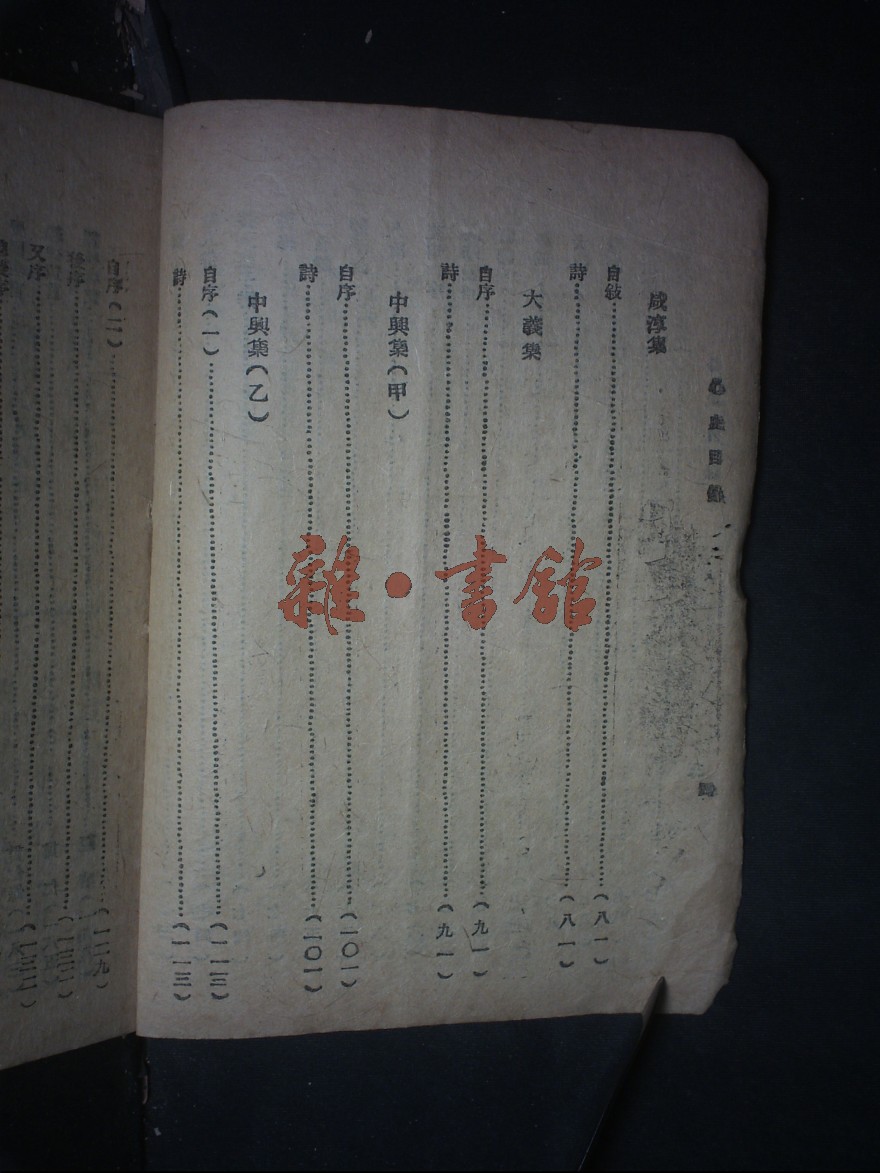 心史目錄
四
咸淳集
自敍……(八一)
詩……(八一)
大義集
自序……(九一)
詩……(九一)
中興集(甲)
自序……(一〇一)
詩……(一〇一)
中興集(乙)
自序(一)……(一一三)
詩……(一一三)
自序(二)……(一二九)
後序
又序
雜·書館